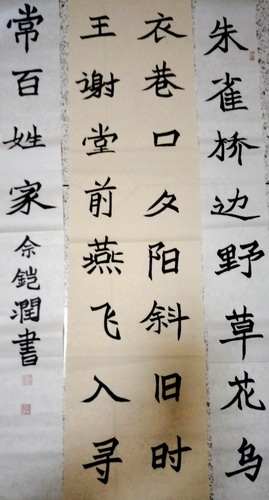 朱雀桥边野草花乌
衣巷口夕阳斜旧时
王谢堂前燕飞入寻
常百姓家余铠润书